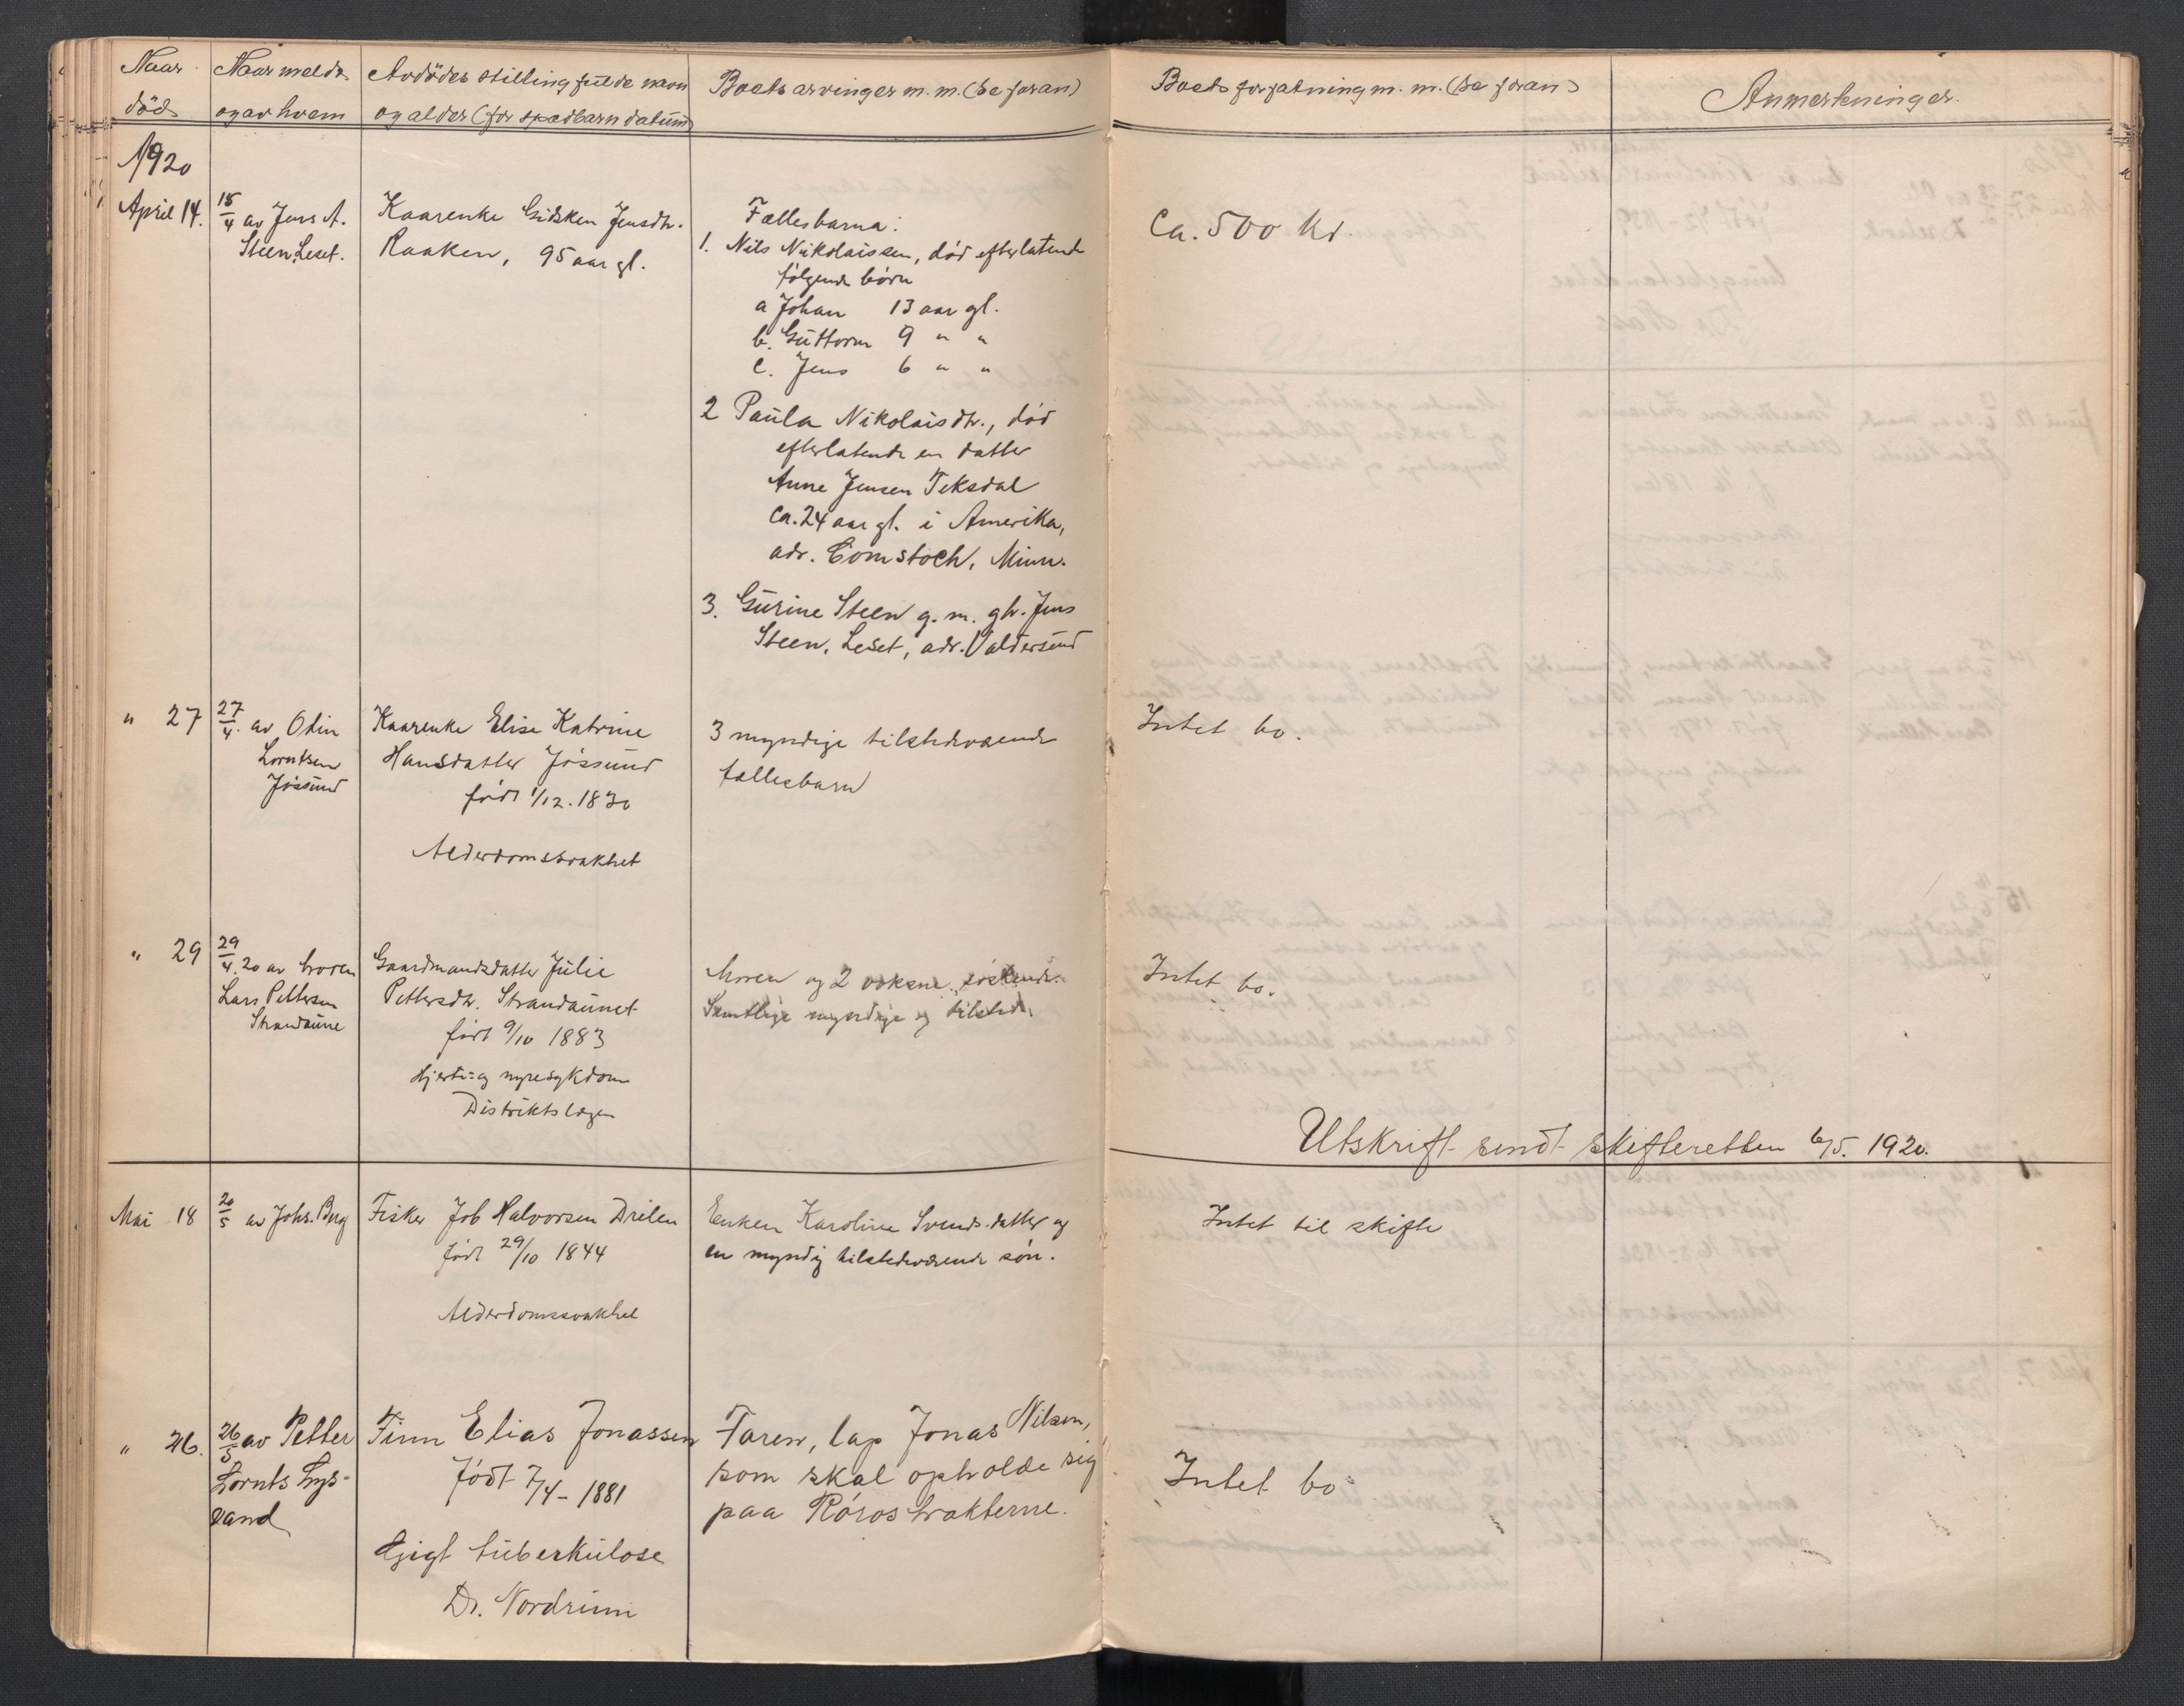 Naar
död
Naar meldt
og av hvem
Avdödes stilling fulde navn
og alder (for spædbarn datum)
Boets arvinger m. m. (se foran)
Boets forfatning m. m. (se foran)
Anmerkninger.
1920
April 14.
15/4 av Jens A.
Steen, Leset.
Kaarenke Gidsken Jensdtr.
Raaken, 95 aar gl.
Fællesbarna:
1. Nils Nikolaissen, død efterlatende
følgende börn
a Johan 13 aar gl.
b. Guttorm 9 " "
c. Jens 6 " "
2 Paula Nikolaisdtr., död
efterlatende en datter
Anne Jensen Teksdal
ca. 24 aar gl. i Amerika,
adr. Comstock, Minn.
3. Gurine Steen g. m. gbr. Jens
Steen, Leset, adr. Valdersund
Ca. 500 kr.
" 27
27/4. av Odin
Lorntsen
Jössund
Kaarenke Elise Katrine
Hansdatter Jössund
født 1/12. 1830
Alderdomssvakhet
3 myndige tilstedværende
fællesbarn
Intet bo.
" 29
29/4. 20 av broren
Lars Pettersen
Strandaune
Gaardmandsdatter Julie
Pettersdtr. Strandaunet
født 9/10 1883
Hjerte- og nyresykdom
Distriktslægen
Moren og 2 voksne söskende.
Samtlige myndige og tilstede.
Intet bo.
Utskrift sendt skifteretten 6/5. 1920.
Mai 18
20/5 av Johs. Berg
Fisker Job Halvorsen Dreilen
født 29/10 1844
Alderdomssvakhet
Enken Karoline Svendsdatter og
en myndig tilstedeværende sön.
Intet til skifte
" 26.
26/5 av Petter
Lornts Lys-
vand
Finn Elias Jonassen
født 7/4 - 1881
Gigt tuberkulose
Dr. Nordrum
Faren, lap Jonas Nilsen,
som skal opholde sig
paa Röros trakterne.
Intet bo